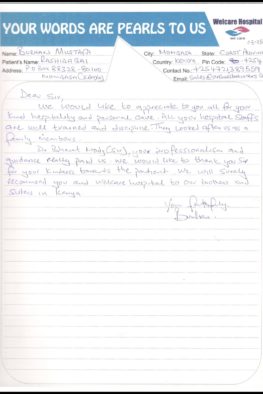 YOUR WORDS ARE PEARLS TO US
Welcare Hospital
Name: BURHANI MUSTAFA City: MOMBASA State: COAST
Patient's Name: RASHIDABAI Country: KENYA Pin Code:
Address: P.O BOX 88328-80100 Contact No.:
MOMBASA, KENYA Email:
Dear Sir,
We would like to appreciate to you all for your
kind hospitality and personal care. All your hospital staffs
are well trained and discipline. They looked after us as a
family members.
Dr Bharat Mody (Sir), your professionalism and
guidance really paid us. We would like to thank you Sir
for your kindness towards the patient. We will surely
recommend you and welcare hospital to our brothers and
sisters in Kenya.
Your faithfully,